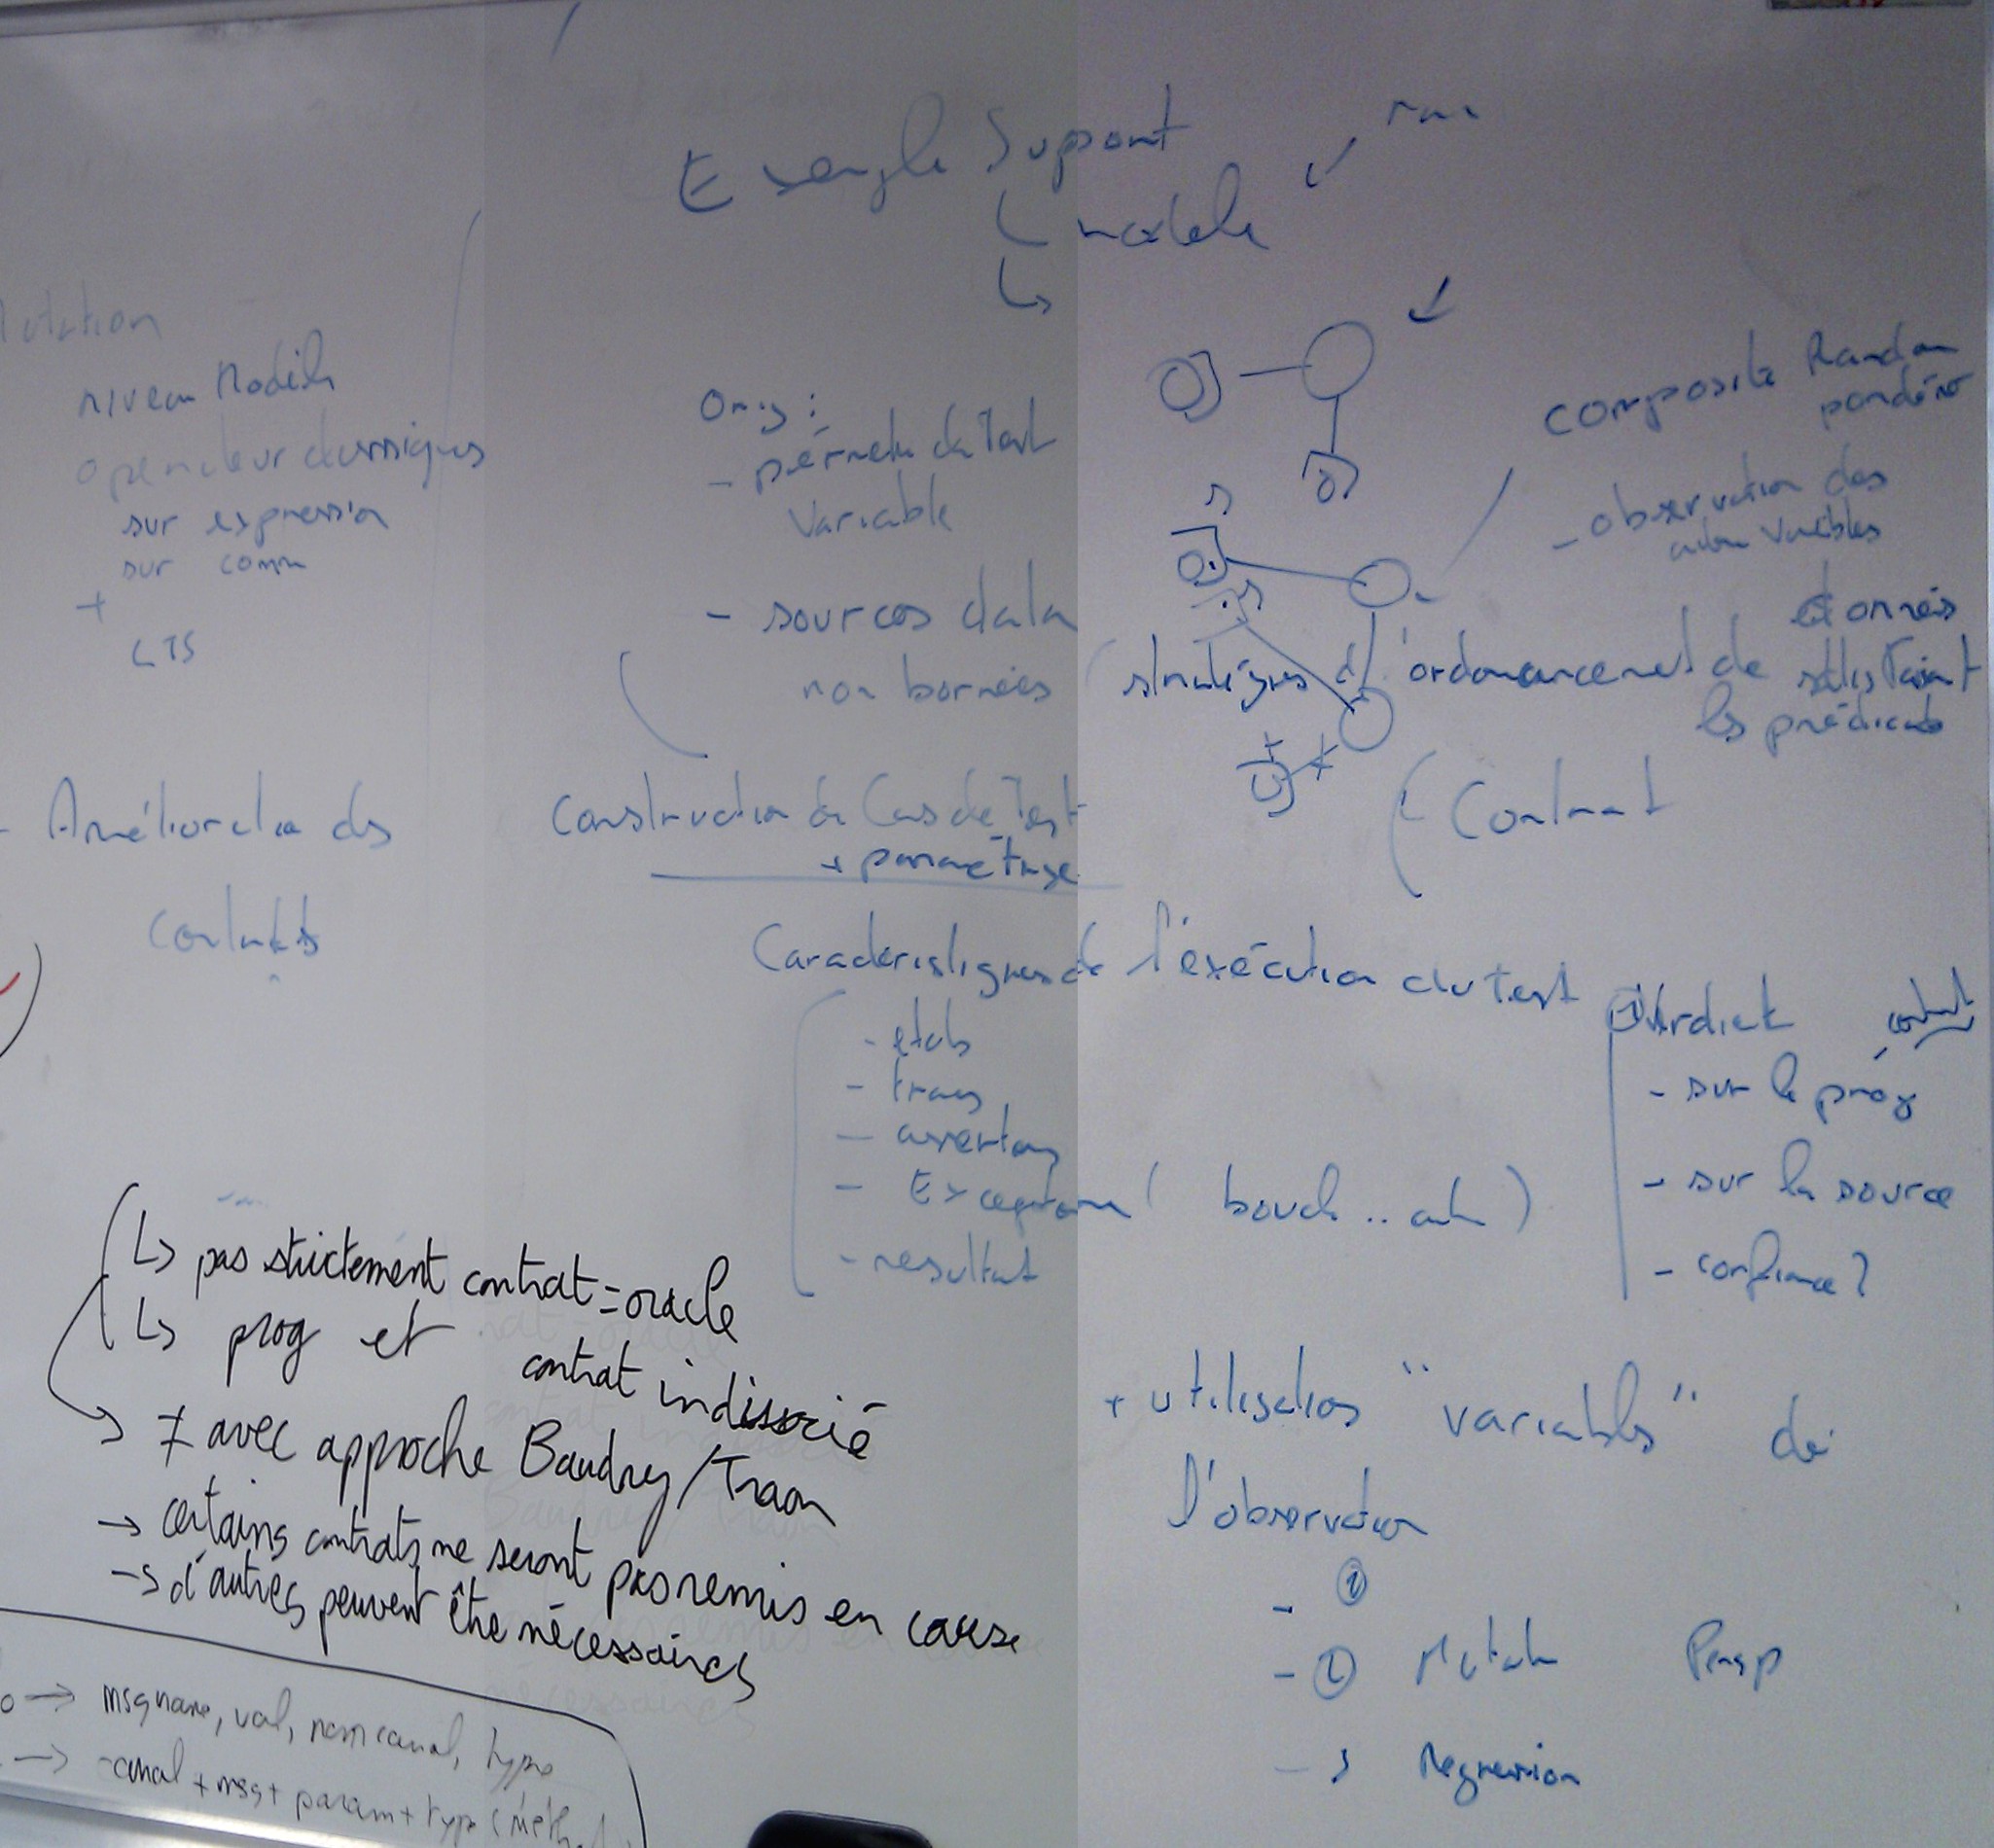 Exemple Support
modèle
Mutation
niveau Modèle
operateur classiques
sur expression
sur comm
+
LTS
Amélioration des
contrats
Orig :
- périmètre du Test
Variable
- sources data
non bornées
Construction de Cas de Test
+ paramétrage
composite Random
pondéré
- observation des
variables
données
stratégies d'ordonnancement de
satisfaisant
les prédicats
Contrat
Caractéristiques de l'exécution du test
- etats
- traces
- assertions
- Exceptions (
)
- resultat
① Verdict
contrat
- sur le prog
- sur la source
- confiance ?
↳ pas strictement contrat = oracle
↳ prog et contrat indissocié
→ ≠ avec approche Baudry/Traon
→ certains contrats ne seront pas remis en cause
→ d'autres peuvent être nécessaires
+ utilisation "variables" de
l'observation
- ①
- ②
- 3 Regression
→ msgname, val, nom canal, type
→ -canal + msg + param + type (méth